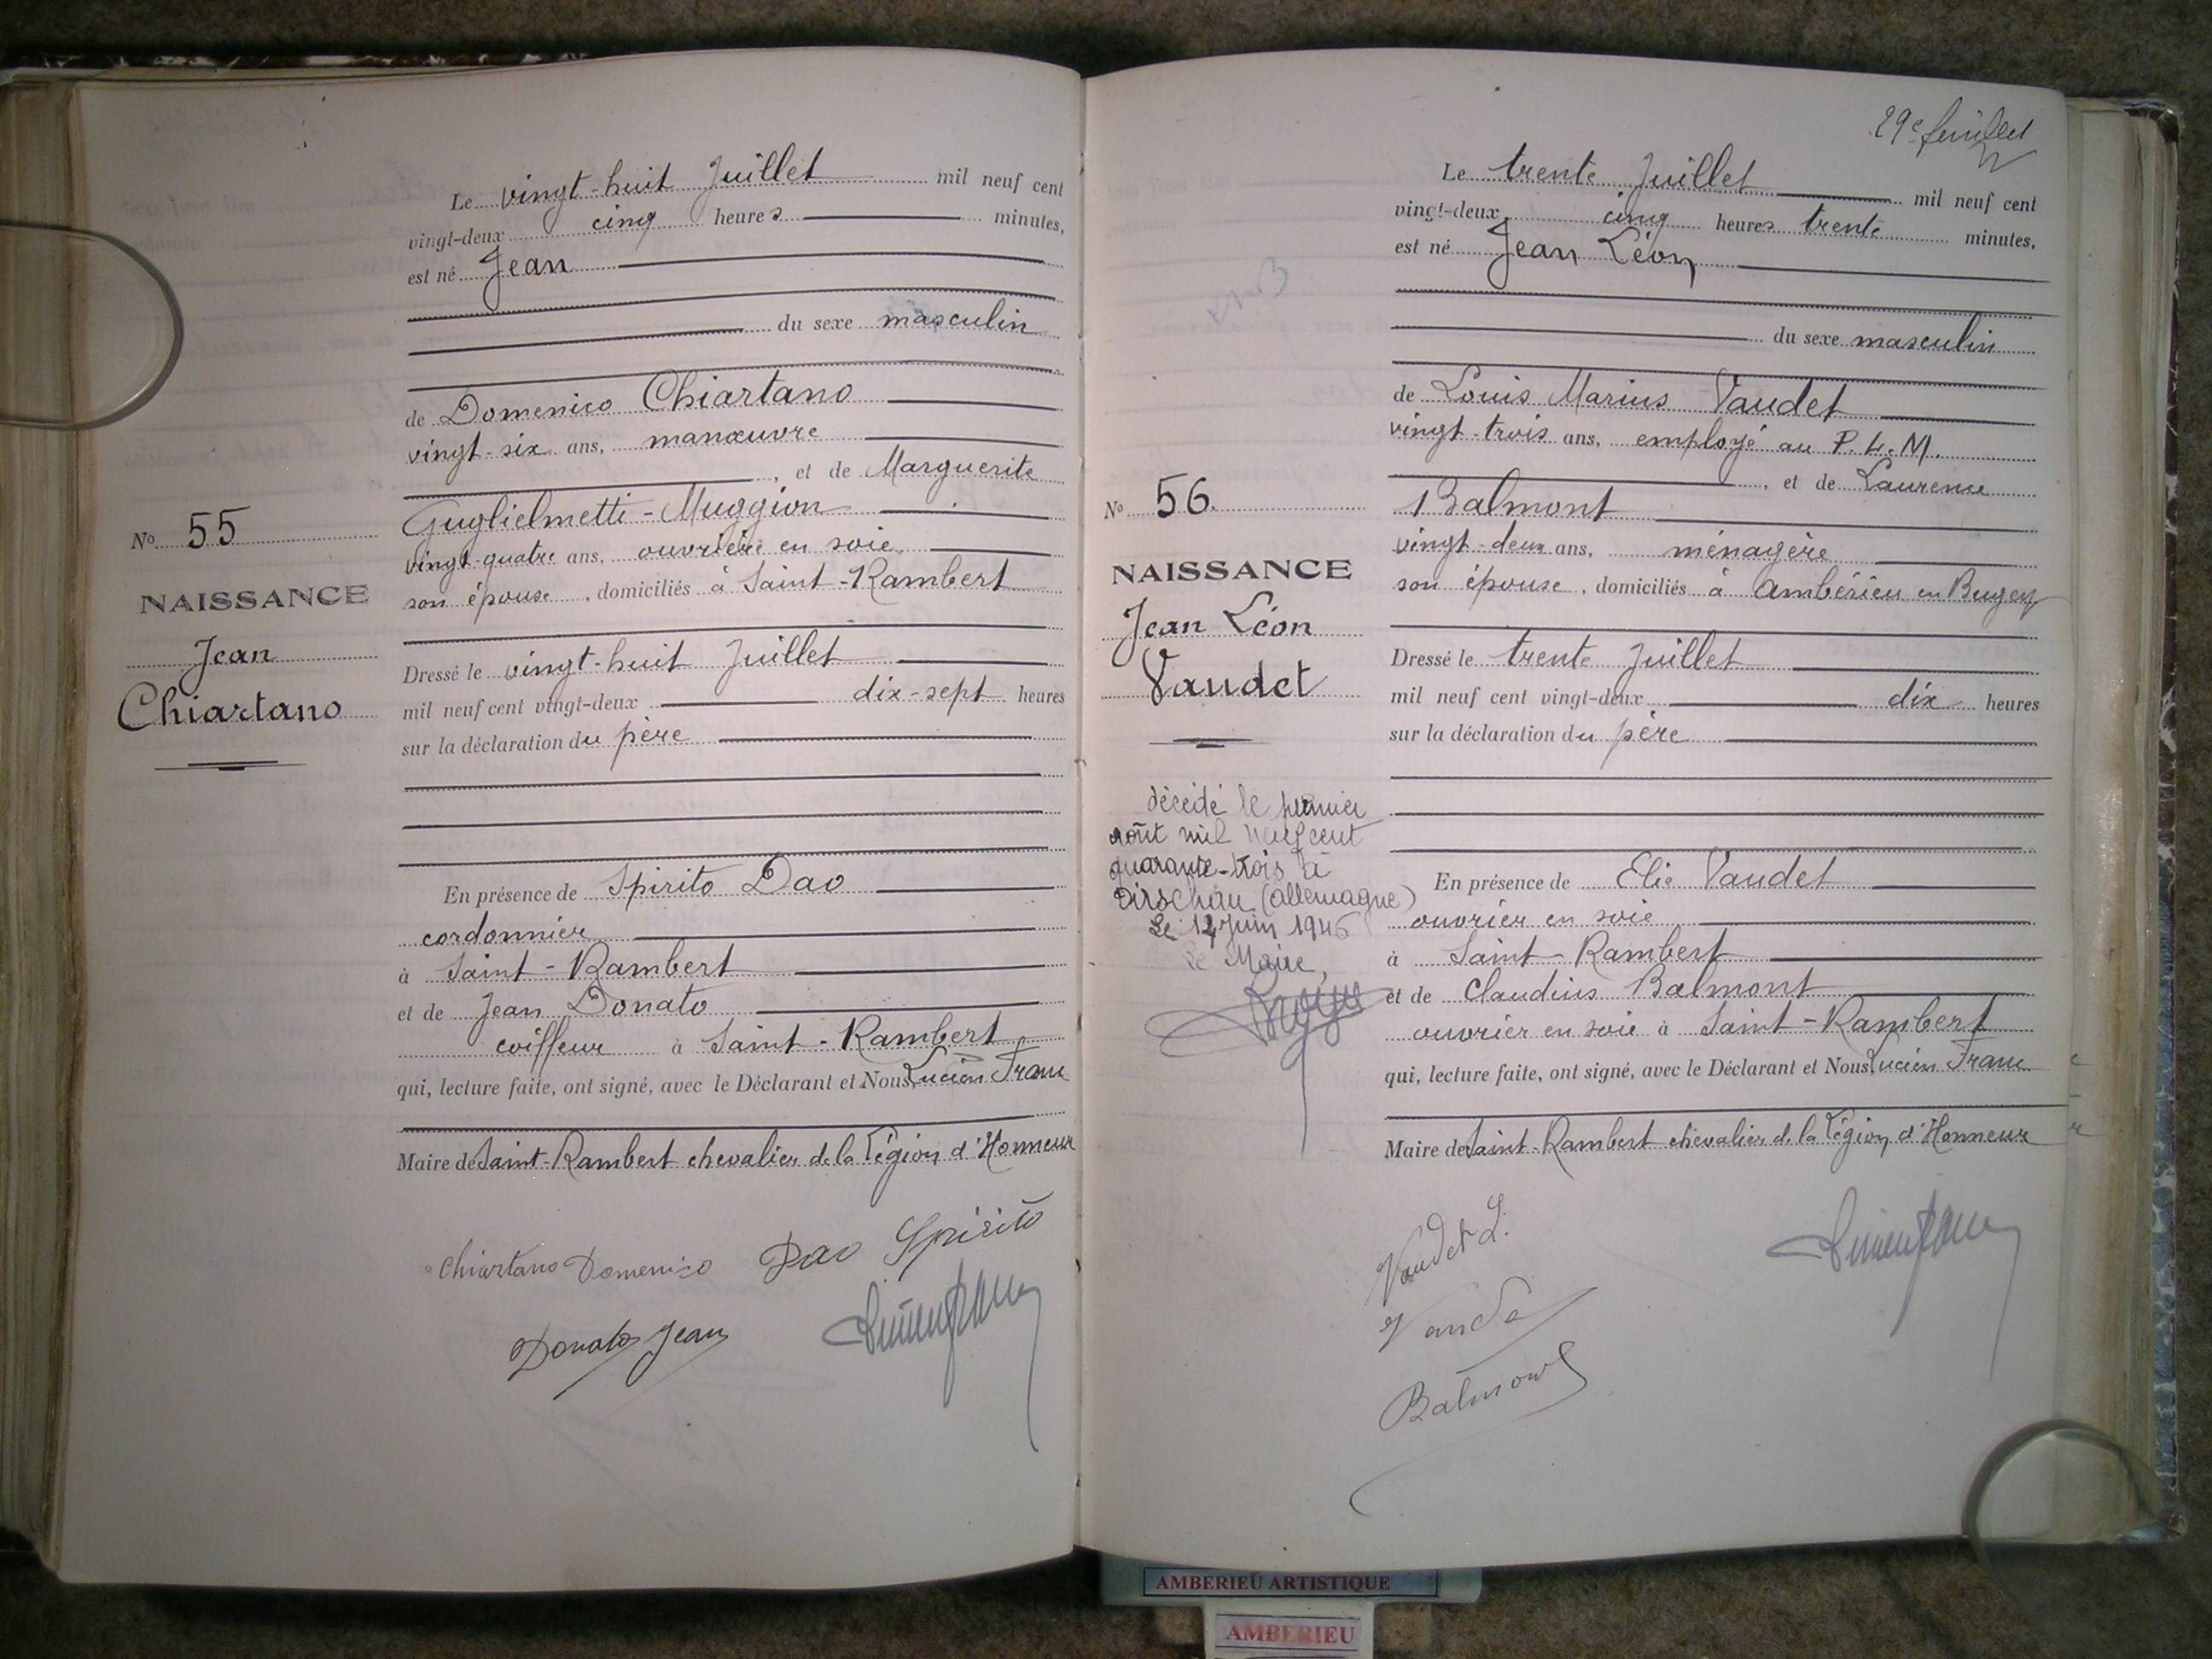 Le vingt-huit Juillet mil neuf cent
vingt-deux cinq heures minutes,
est né Jean
du sexe masculin
de Domenico Chiartano
vingt-six ans, manœuvre
, et de Marguerite
Guglielmetti-Muggion
vingt-quatre ans, ouvrière en soie
son épouse, domiciliés à Saint-Rambert
No 55
NAISSANCE
Jean
Chiartano
Dressé le vingt-huit Juillet
mil neuf cent vingt-deux dix-sept heures
sur la déclaration du père
En présence de Spirito Dao
cordonnier
à Saint-Rambert
et de Jean Donato
coiffeur à Saint-Rambert
qui, lecture faite, ont signé, avec le Déclarant et Nous, Lucien Franc
Maire de Saint-Rambert chevalier de la Légion d'Honneur
Chiartano Domenico Dao Spirito
Donato Jean
29e feuillet
Le trente Juillet mil neuf cent
vingt-deux, cinq heures trente minutes,
est né Jean Léon
du sexe masculin
de Louis Marius Vaudet
vingt-trois ans, employé au P.L.M.
, et de Laurence
Balmont
vingt-deux ans, ménagère
son épouse, domiciliés à Ambérieu en Bugey
No 56.
NAISSANCE
Jean Léon
Vaudet
décédé le premier
août mil neuf cent
quarante-trois à
Dirschau (Allemagne)
Le 12 Juin 1946
Le Maire,
Dressé le trente Juillet
mil neuf cent vingt-deux dix heures
sur la déclaration du père
En présence de Elie Vaudet
ouvrier en soie
à Saint-Rambert
et de Claudius Balmont
ouvrier en soie à Saint-Rambert
qui, lecture faite, ont signé, avec le Déclarant et Nous, Lucien Franc
Maire de Saint-Rambert chevalier de la Légion d'Honneur
Vaudet L.
Balmont
AMBERIEU ARTISTIQUE
AMBERIEU